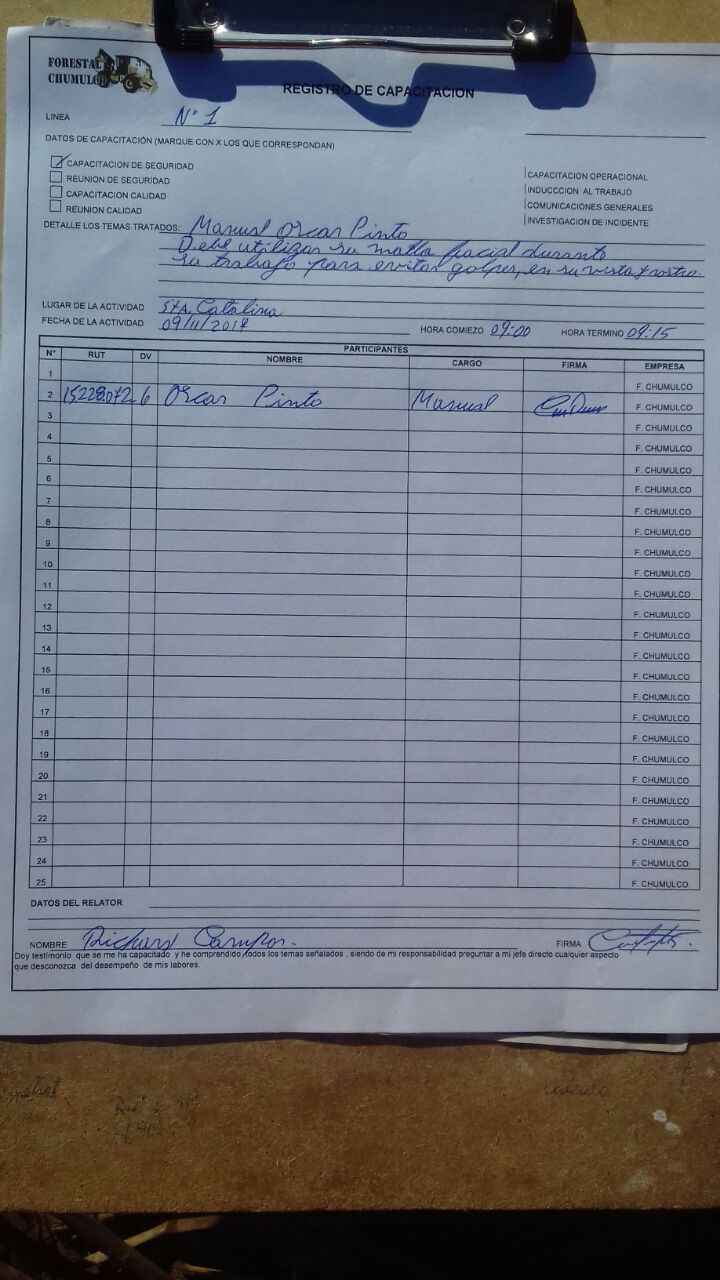 FORESTAL
CHUMULCO
REGISTRO DE CAPACITACION
LINEA N° 1
DATOS DE CAPACITACIÓN (MARQUE CON X LOS QUE CORRESPONDAN)
CAPACITACION DE SEGURIDAD
REUNION DE SEGURIDAD
CAPACITACION CALIDAD
REUNION CALIDAD
CAPACITACION OPERACIONAL
INDUCCCION AL TRABAJO
COMUNICACIONES GENERALES
INVESTIGACION DE INCIDENTE
DETALLE LOS TEMAS TRATADOS: Manual Oscar Pinto
Debe utilizar su malla facial durante
su trabajo para evitar golpes, en su vista y rostro.
LUGAR DE LA ACTIVIDAD Sta. Catalina
FECHA DE LA ACTIVIDAD 09/11/2017 HORA COMIEZO 09:00 HORA TERMINO 09:15
PARTICIPANTES
N° RUT DV NOMBRE CARGO FIRMA EMPRESA
1 F. CHUMULCO
2 6 Oscar Pinto Manual F. CHUMULCO
3 F. CHUMULCO
4 F. CHUMULCO
5 F. CHUMULCO
6 F. CHUMULCO
7 F. CHUMULCO
8 F. CHUMULCO
9 F. CHUMULCO
10 F. CHUMULCO
11 F. CHUMULCO
12 F. CHUMULCO
13 F. CHUMULCO
14 F. CHUMULCO
15 F. CHUMULCO
16 F. CHUMULCO
17 F. CHUMULCO
18 F. CHUMULCO
19 F. CHUMULCO
20 F. CHUMULCO
21 F. CHUMULCO
22 F. CHUMULCO
23 F. CHUMULCO
24 F. CHUMULCO
25 F. CHUMULCO
DATOS DEL RELATOR
NOMBRE Richard Campos. FIRMA
Doy testimonio que se me ha capacitado y he comprendido todos los temas señalados , siendo de mi responsabilidad preguntar a mi jefe directo cualquier aspecto
que desconozca del desempeño de mis labores.